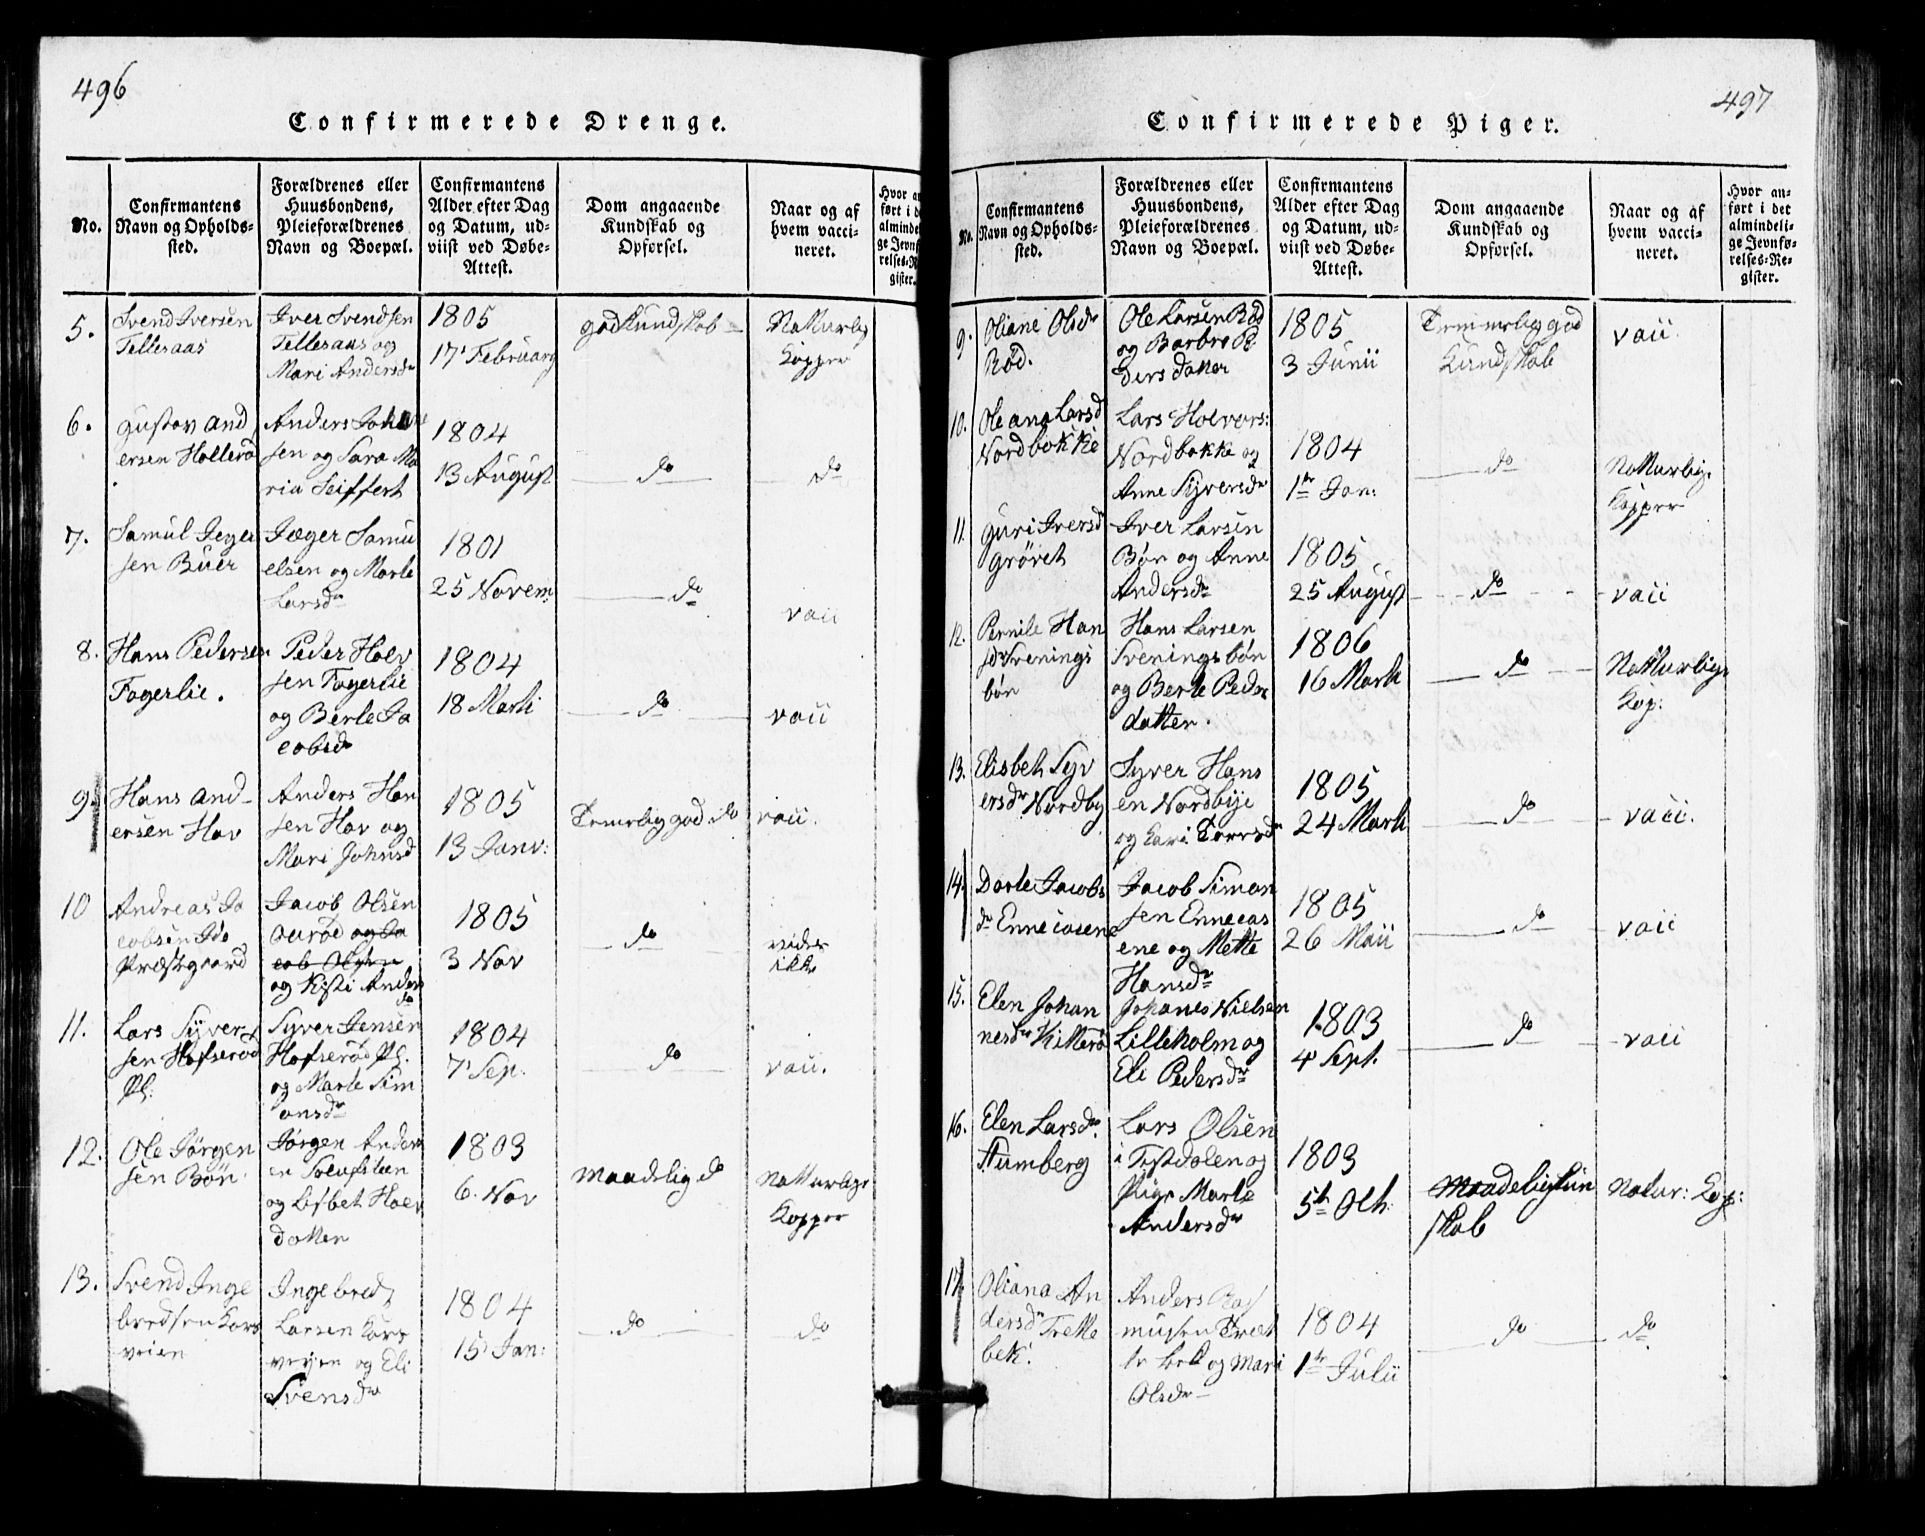 496
Confirmerede Drenge.
No.
Confirmantens
Navn og Opholds-
sted.
Forældrenes eller
Huusbondens,
Pleieforældrenes
Navn og Boepæl.
Confirmantens
Alder efter Dag
og Datum, ud-
viist ved Døbe-
Attest.
Dom angaaende
Kundskab og
Opførsel.
Naar og af
hvem vacci-
neret.
Hvor an
ført i de
almindel
ge Jevnf
relses-R
gister.
5.
Svend Iversen
Tellesaas
Iver Svendsen
Tellesaas og
Mari Andersdr
1805
17 Februarg
god Kundskab
Natturlig
Kopper
6.
Gustav And
ersen Hollerød
Anders Johan
sen og Sara Ma
ria Seiffert
1804
13 August
do
do
7.
Samul Jeger
sen Buer
Jæger Samu
elsen og Marte
Larsdr
1801
25 Novem:
do
vacc
8.
Hans Pedersen
Fagerlie.
Peder Holv
sen Fagerlie
og Berte Ja
cobsdr
1804
18 Marti
do
vacc
9.
Hans And-
ersen Hov
Anders Han
sen Hov og
Mari Johnsd
1805
13 Janv:
Temelig god do
vacc.
10
Andreas Ja
cobsen Ide
Præstegaard
Jacob Olsen
Aarød og Ja
cob Olsen
og Kisti Anders
dr
1805
3 Nov
do
vides
ikke
11.
Lars Syver-
sen Hafserød
Pl:
Syver Jensen
Hafserød Pl.
og Marte Sim
onsdr
1804
7 Sep.
do
vacc.
12.
Ole Jørgen
sen Bøn
Jørgen Anders
en
og Lisbet Holv
datter
1803
6. Nov
Maadelig do
Natturlige
Kopper
13.
Svend Inge
bredsen Kors
veien
Ingebredt
Larsen Kors
veyen og Eli
Svensdr
1804
15 Jan:
do
do
497
Confirmerede Piger.
No.
Confirmantens
Navn og Opholds-
sted.
Forældrenes eller
Huusbondens,
Pleieforældrenes
Navn og Boepæl.
Confirmantens
Alder efter Dag
og Datum, ud-
viist ved Døbe-
Attest.
Dom angaaende
Kundskab og
Opførsel.
Naar og af
hvem vacci-
neret.
Hvor an-
ført i det
almindeli-
ge Jevnfø-
relses-Re-
gister.
9.
Oliane Olsdr
Rød.
Ole Larsen Rød
og Barbro Pe
ders datter
1805
3 Junii
Temmelig god
Kundskab
vacc.
10.
Oleana Larsd
Nordbakke
Lars Holvors:
Nordbakke og
Anne Syversdr
1804
1te Jan:
do
Natturlig.
Kopper
11.
Guri Iversd
Grøvet
Iver Larsen
Bøn og Anne
Andersdr
1805
25 August
do
vacc
12.
Pernile Han
sdr Svenings
bøn
Hans Larsen
Svenings bøn
og Berte Peder
datter.
1806
16 Marti
do
Natturlige
Kop:
13.
Elisbeth Syv
ersdr Nordby
Syver Hans
en Nordbye
og Kari Torrsdr
1805
24 Marti
do
vacc.
14.
Dorte Jacobs
dr Enneiasene
Jacob Simon
sen Enneeas
ene og Mette
Hansdr
1805
26 Maii
do
vacc
15.
Elen Johan
nesdr Kitterø
Johanes Nielsen
Lilleholm og
Eli Pedersdr
1803
4 Sept.
do
vacc
16.
Elen Larsdr.
Stumberg
Lars Olsen
i Tistdalen og
Pige Marte
Andersdr
1803
5te Octb.
Maadelig Kun
skab
Natur: Kop:
17.
Oliana An
dersdr Trette
bek.
Anders Ras
musen Træt
te bek og Mari
Olsdr
1804
1te Julii
do
do.